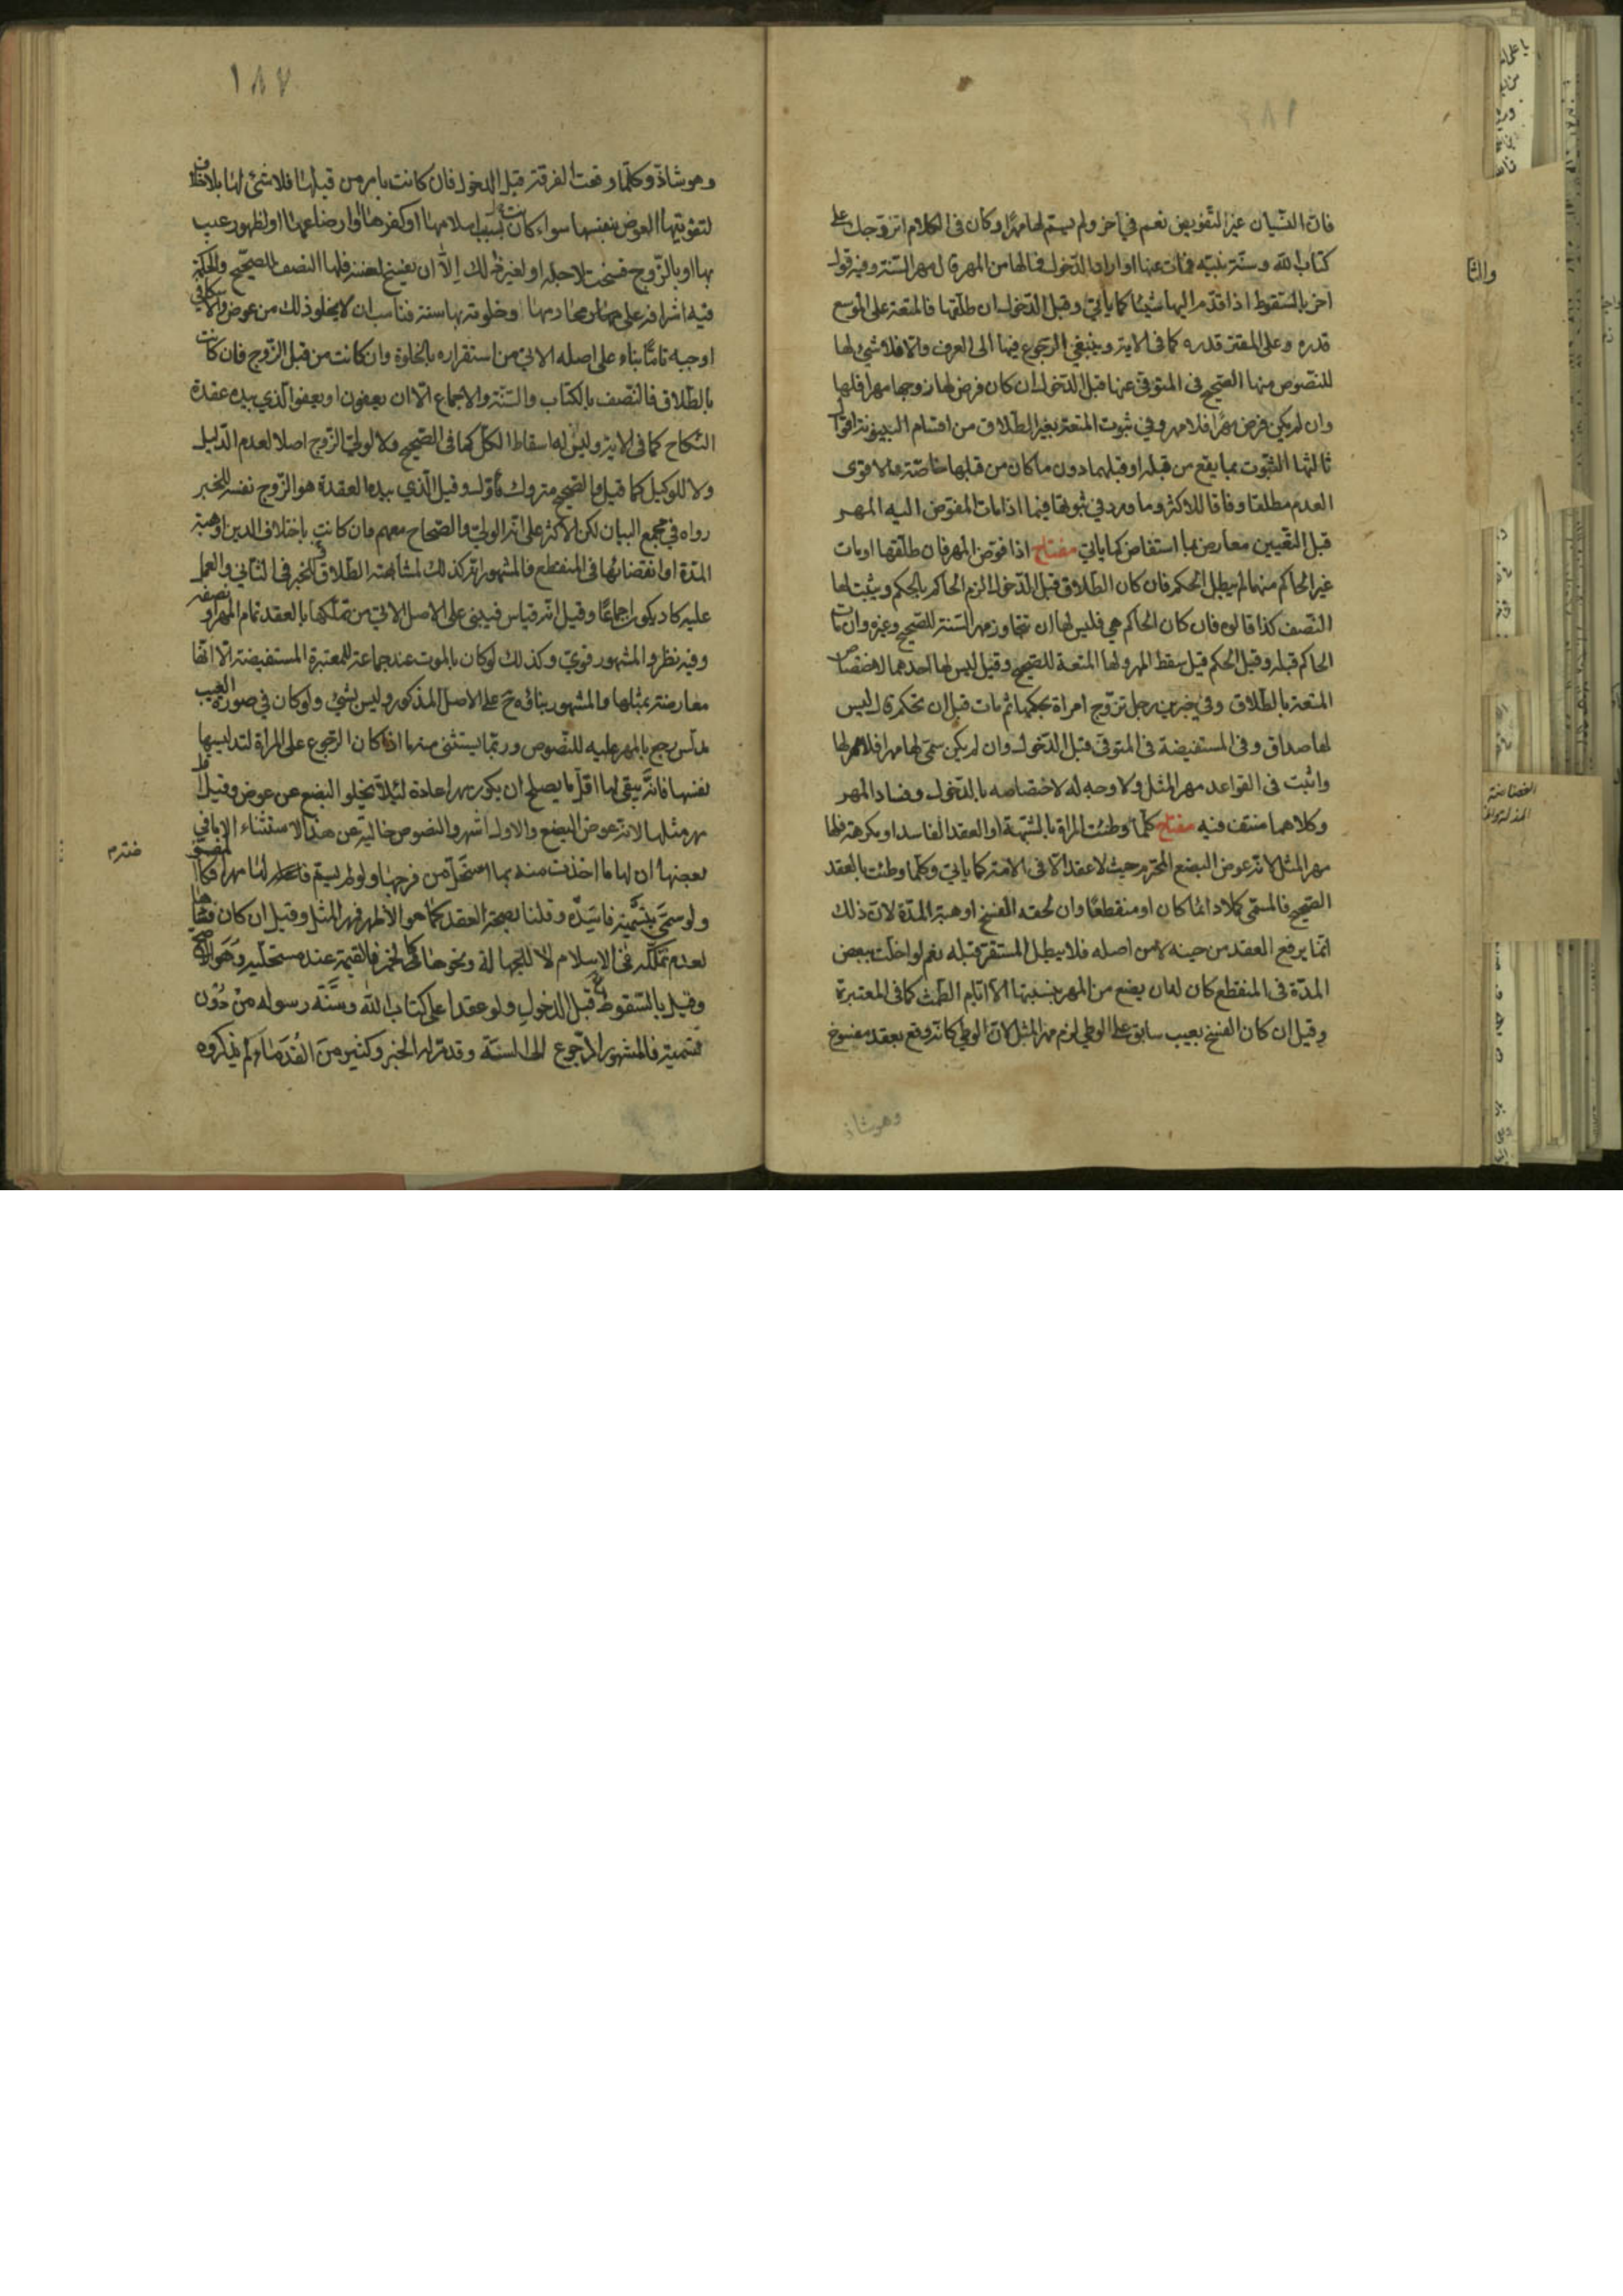 فان النسيان غير التفويض نعم في اخر ولم يسم لها مهرا وكان في الكلام اتزوجك على
كتاب الله وسنة نبيه فمات عنها او اراد الدخول فما لها من المهر قال مهر السنة وفيه قول
اخر بالسقوط اذا قدم اليها شيئا كما ياتي وقبل الدخول ان طلقها فالمتعة على الموسع
قدره وعلى المقتر قدره كما في الاية وينبغي الرجوع فيها الى العرف والا فلا شيء لها
للنصوص منها الصحيح في المتوفى عنها قبل الدخول ان كان فرض لها زوجها مهرا فلها
وان لم يكن فرض مهرا فلا مهر وفي ثبوت المتعة بغير الطلاق من اقسام البينونة اقوال
ثالثها الثبوت بما يقع من قبله او قبلهما دون ما كان من قبلها خاصة والاقوى
العدم مطلقا وفاقا للاكثر وما ورد في ثبوتها فيما اذا مات المفوض اليه المهر
قبل التعيين معارض بما استفاض كما ياتي مفتاح اذا فوض المهر فان طلقها او مات
غير الحاكم منهما لم يبطل الحكم فان كان الطلاق قبل الدخول الزم الحاكم بالحكم ويثبت لها
النصف كذا قالوه فان كان الحاكم هي فليس لها ان تتجاوز مهر السنة للصحيح وغيره وان مات
الحاكم قبله وقبل الحكم قيل سقط المهر ولها المتعة للصحيح وقيل ليس لها احدهما لاختصاص
المتعة بالطلاق وفي خبر في رجل تزوج امراة بحكمها ثم مات قبل ان تحكم قال ليس
لها صداق وفي المستفيضة في المتوفى قبل الدخول وان لم يكن سمى لها مهرا فلا مهر لها
واثبت في القواعد مهر المثل ولا وجه له لاختصاصه بالدخول وفساد المهر
وكلاهما منتف فيه مفتاح كلما وطئت المراة بالشبهة او العقد الفاسد او مكرهة فلها
مهر المثل لانه عوض البضع المحترم حيث لا عقد الا في الامة كما ياتي وكلما وطئت بالعقد
الصحيح فالمسمى كملا دائما كان او منقطعا وان لحقه الفسخ او هبة المدة لان ذلك
انما يرفع العقد من حينه لا من اصله فلا يبطل المستقر قبله نعم لو اخلت ببعض
المدة في المنقطع كان له ان يضع من المهر بنسبتها الا ايام الطمث كما في المعتبرة
وقيل ان كان الفسخ بعيب سابق على الوطي لزم مهر المثل لان الوطي كانه وقع بعقد مفسوخ
وهو شاذ
١٨٧
وهو شاذ وكلما وقعت الفرقة قبل الدخول فان كانت بامر من قبلها فلا شئ لها بلا خلاف
لتفويتها العوض بنفسها سواء كانت بسبب اسلامها او كفرها او ارضاعها او لظهور عيب
بها او بالزوج فسخت لاجله او لغير ذلك إلا ان تفسخ لعننه فلها النصف للصحيح والحكمة
فيه اشرافه على محارمها وخلوته بها سنة فناسب ان لا يخلو ذلك من عوض والاسكافي
اوجبه تاما بناء على اصله الاتي من استقراره بالخلوة وان كانت من قبل الزوج فان كانت
بالطلاق فالنصف بالكتاب والسنة والاجماع الا ان يعفون او يعفو الذي بيده عقدة
النكاح كما في الاية وليس له اسقاط الكل كما في الصحيح ولا لولي الزوج اصلا لعدم الدليل
ولا للوكيل كما قيل والصحيح متروك ماول وقيل الذي بيده العقدة هو الزوج نفسه للخبر
رواه في مجمع البيان لكن الاكثر على انه الولي والصحاح معهم وان كانت باختلاف الدين او هبة
المدة او انقضائها في المنقطع فالمشهور انه كذلك لمشابهته الطلاق وللخبر في الثاني والعمل
عليه كاد يكون اجماعا وقيل انه قياس فيبنى على الاصل الاتي من تملكها بالعقد تمام المهر او نصفه
وفيه نظر والمشهور قوي وكذلك لو كان بالموت عند جماعة للمعتبرة المستفيضة الا انها
معارضة بمثلها والمشهور بنائه ح على الاصل المذكور وليس بشئ ولو كان في صورة العيب
مدلس رجع بالمهر عليه للنصوص وربما يستثنى منها اذا كان الرجوع على المراة لتدليسها
نفسها فانه يبقى لها اقل ما يصلح ان يكون مهرا عادة لئلا يخلو البضع عن عوض وقيل اقل
مهر مثلها لانه عوض البضع والاول اشهر والنصوص خالية عن هذا الاستثناء الا ما في
بعضها ان لها ما اخذت منه بما استحل من فرجها ولو لم يسم لها مهرا فكالمفوضة
ولو سمى بتسمية فاسدة وقلنا بصحة العقد كما هو الاظهر فمهر المثل وقيل ان كان فسادها
لعدم تملكه في الاسلام لا للجهالة ونحوها كالخمر فالقيمة عند مستحليه وهو الاصح
وقيل بالسقوط قبل الدخول ولو عقدا على كتاب الله وسنة رسوله من دون
تسمية فالمشهور الرجوع الى السنة وقد مر الخبر وكثير من القدماء لم يذكروه